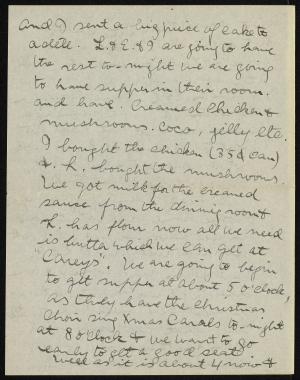 and I sent a big piece of cake to
Adele. L. & E. & I are going to have
the rest to-night we are going
to have supper in their room.
and have. Creamed Chicken &
mushrooms. coco, jelly etc.
I bought the chicken (35¢ can)
& L. bought the mushrooms.
We got milk for the creamed
sauce from the dining room &
L. has flour now all we need
is butta which we can get at
"Careys". We are going to begin
to get supper at about 5 o'clock,
as they have the Christmas
Choir sing Xmas Carols to-night
at 8 o'clock & we want to go
early to get a good seat
well as it is about 4 now &